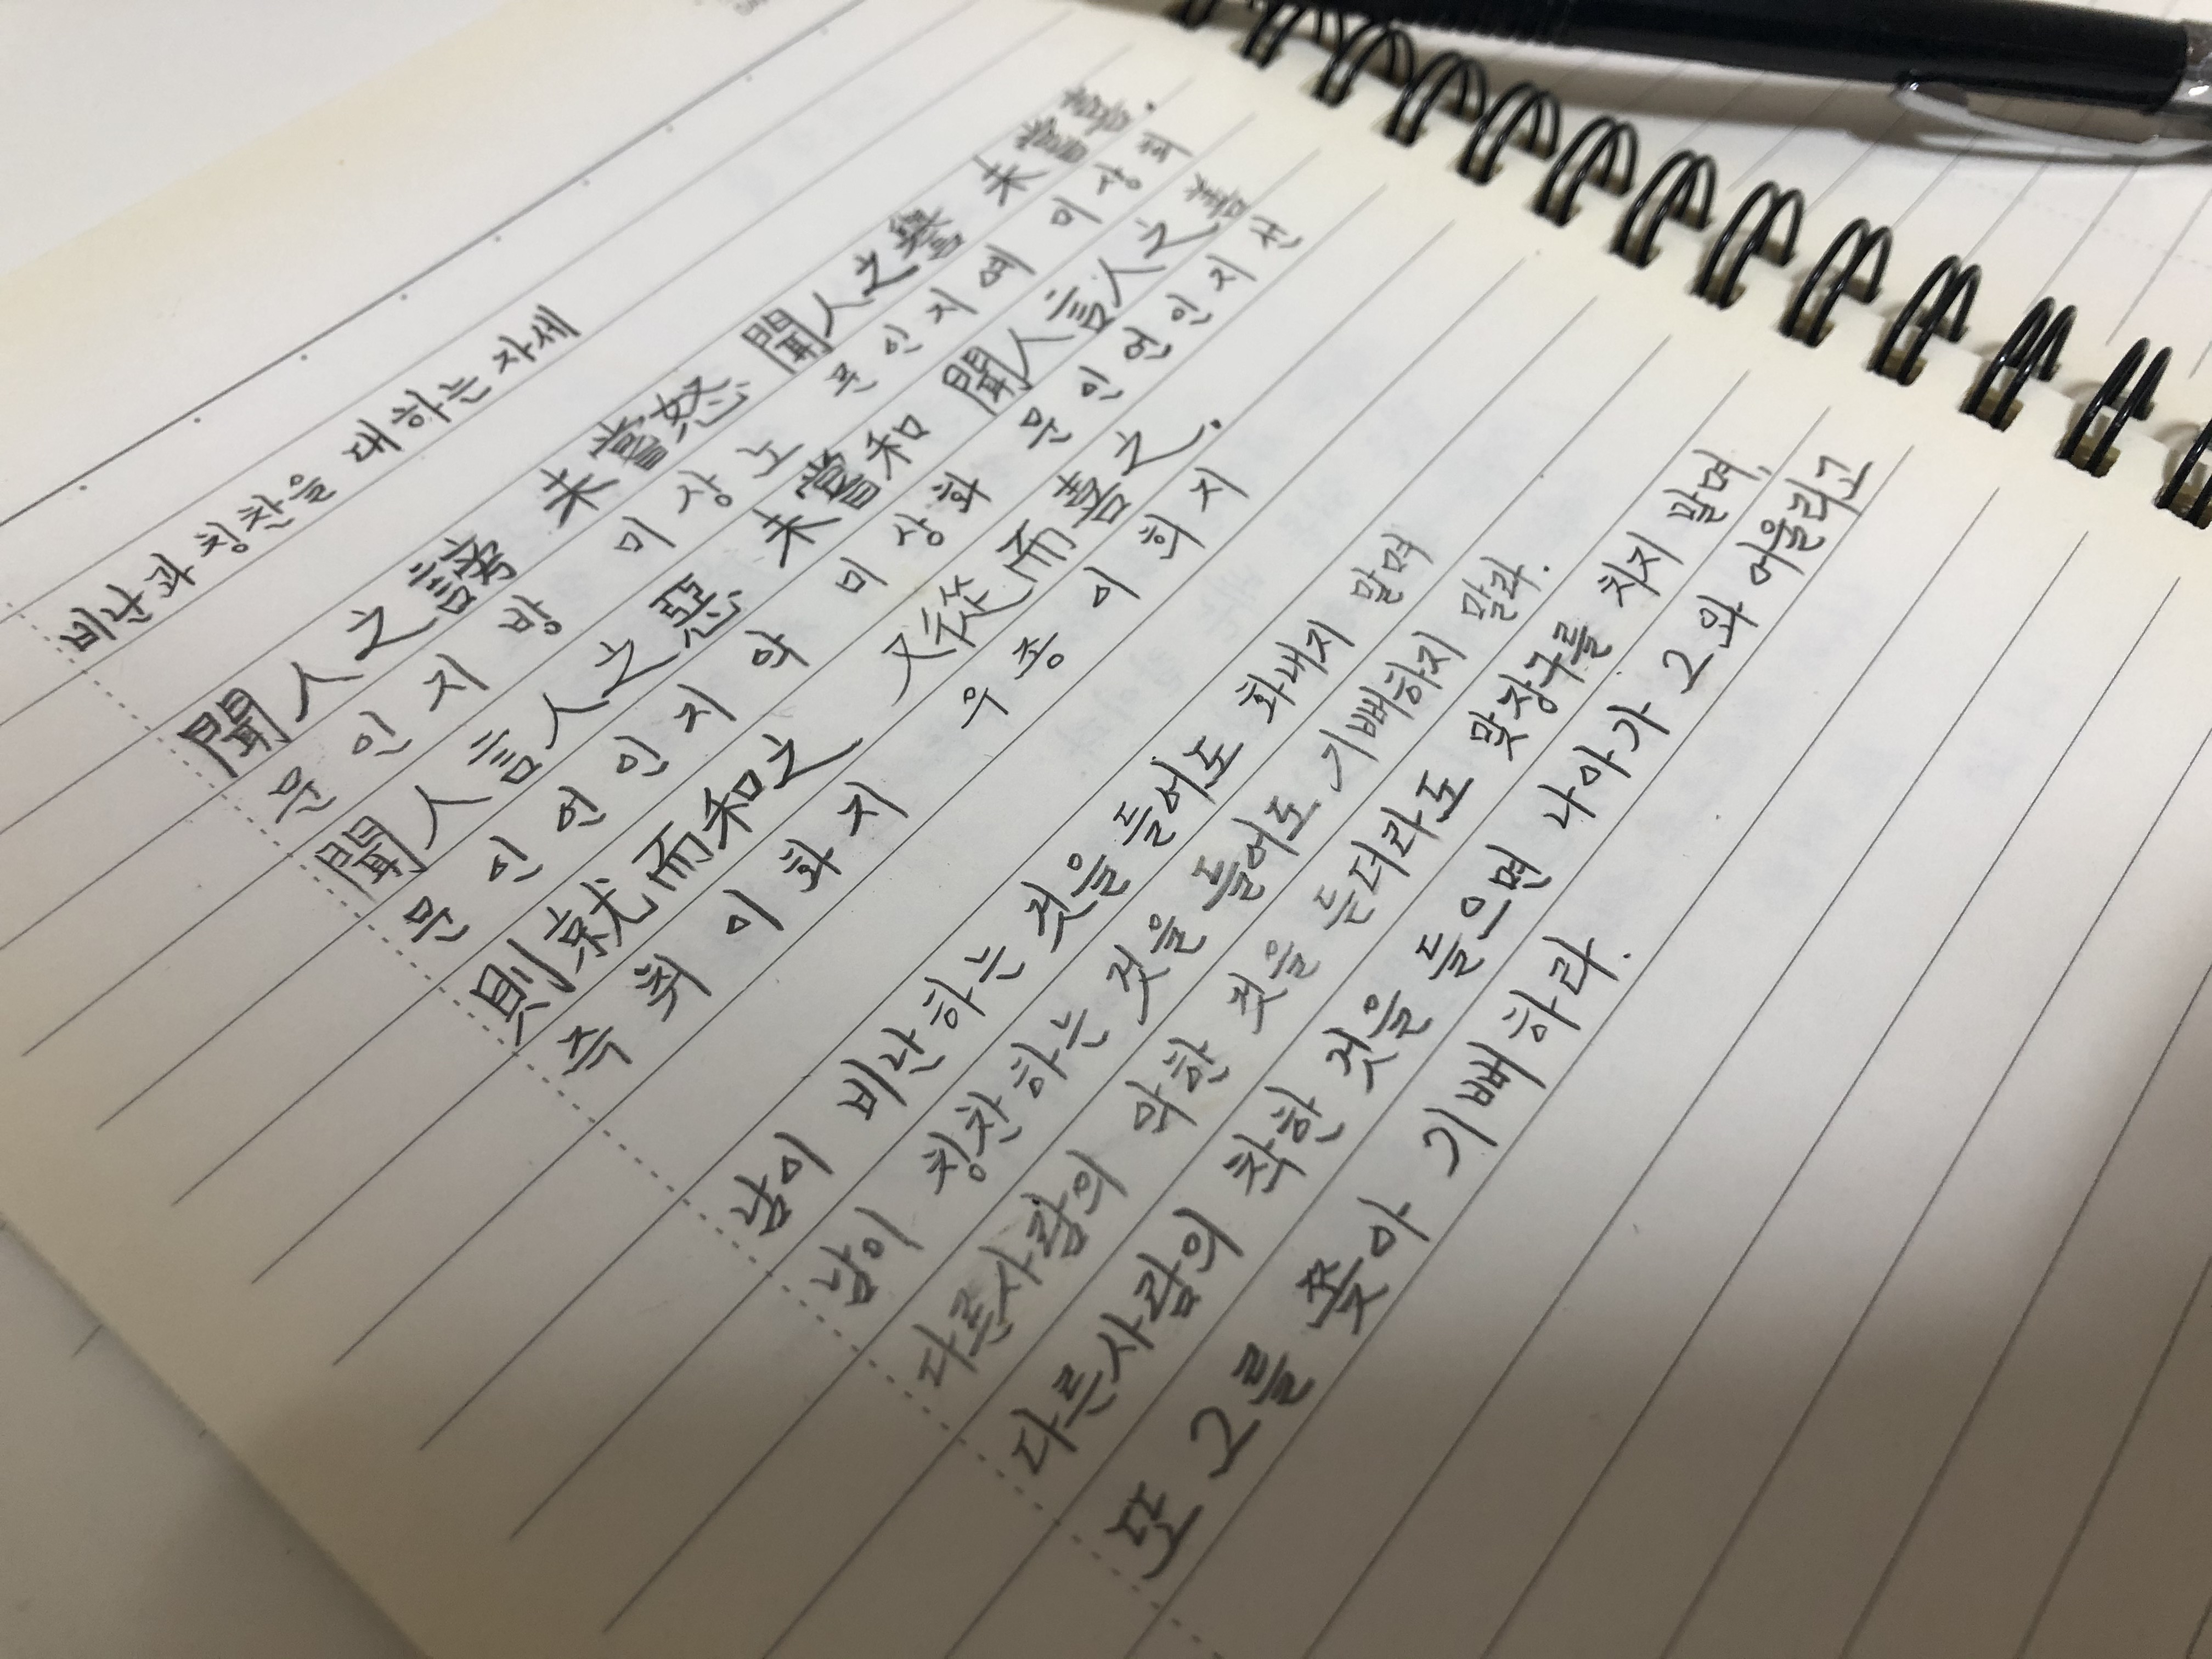 비난과 칭찬을 대하는 자세
聞人之謗 未嘗怒 聞人之譽 未嘗喜.
문 인 지 방 미 상 노 문 인 지 예 미 상 희
聞人言人之惡 未嘗和 聞人言人之善
문 인 언 인 지 악 미 상 화 문 인 언 인 지 선
則就而和之 又從而喜之.
즉 취 이 화 지 우 종 이 희 지
남이 비난하는 것을 들어도 화내지 말며
남이 칭찬하는 것을 들어도 기뻐하지 말라.
다른사람의 악한 것을 듣더라도 맞장구를 치지 말며,
다른사람의 착한 것을 들으면 나아가 그와 어울리고
또 그를 쫒아 기뻐하라.